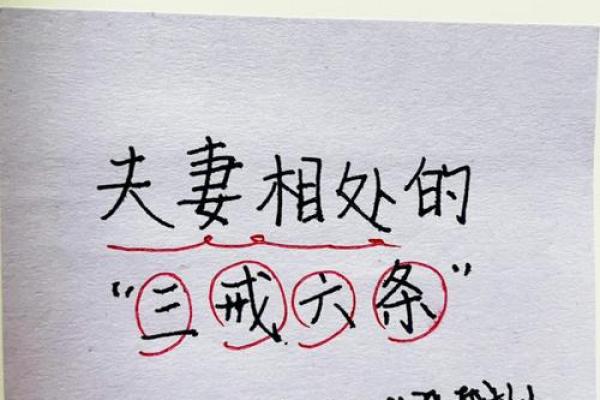 夫妻相处的
“三戒六条”